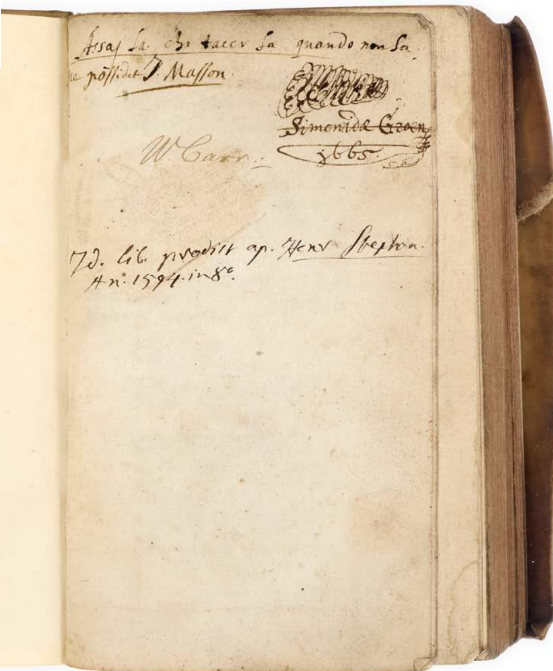 Assaj sa, chi tacer sa quando non sa.
possidet J Masson.
Simonidæ Groen
1665.
W Carr.
Id. lib. prodiit ap. Henr Stephan.
An. 1594. in 8°.